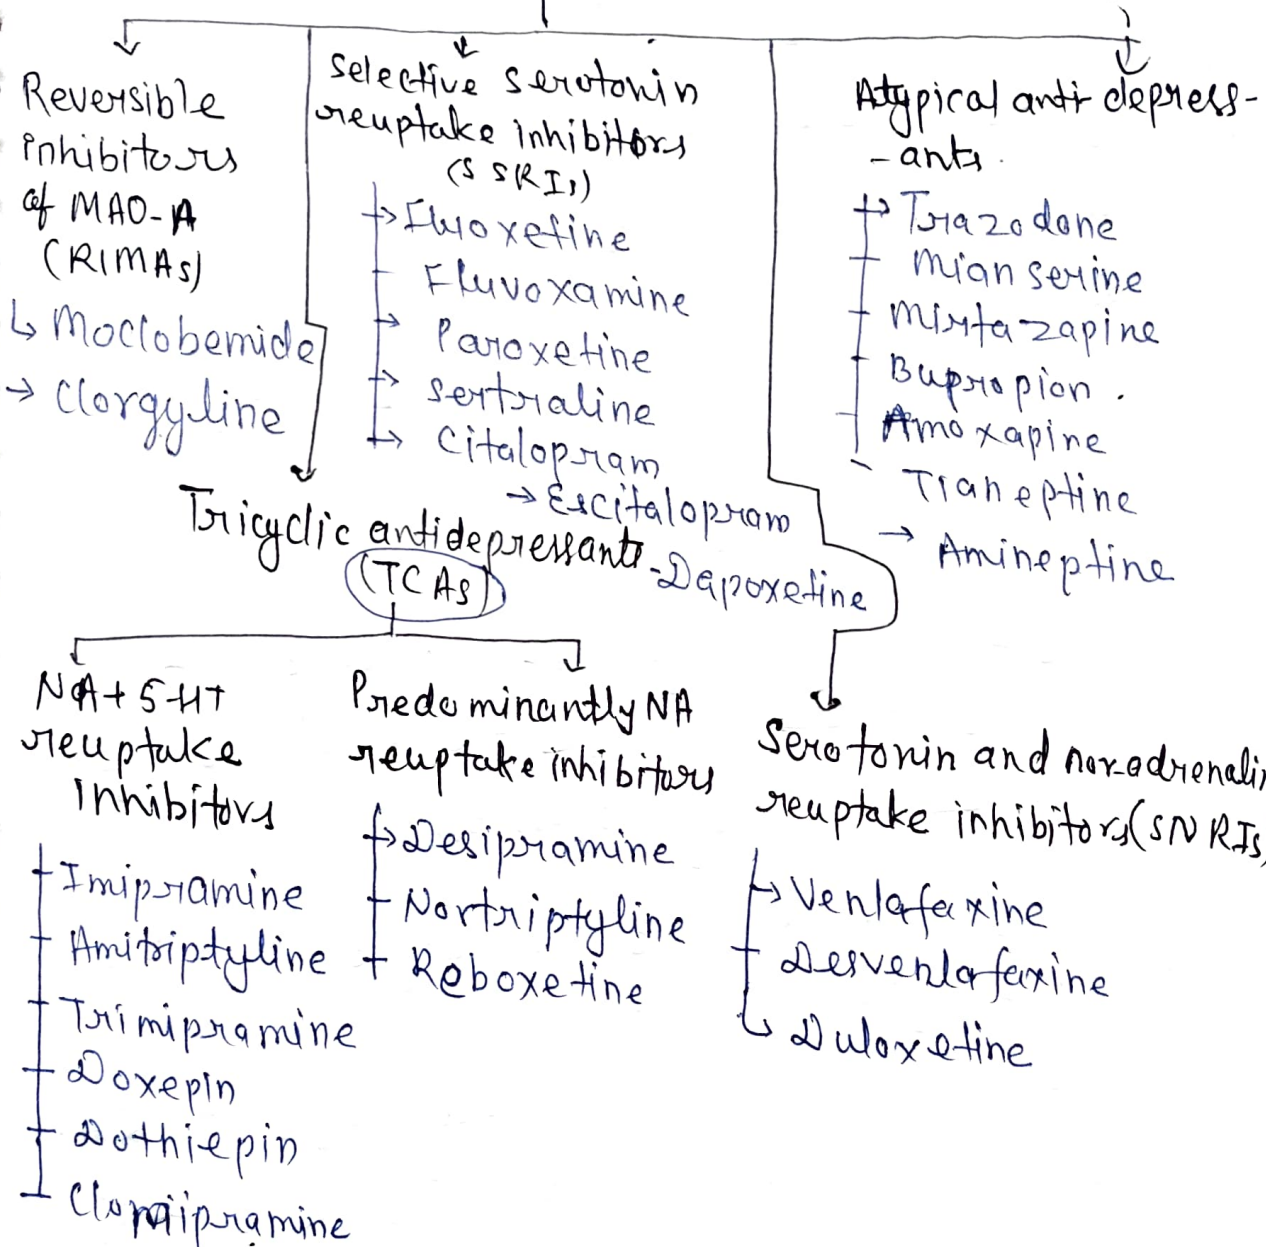 Reversible
inhibitors
of MAO-A
(RIMAs)
Moclobemide
Clorgyline
Selective serotonin
reuptake inhibitors
(SSRIs)
Fluoxetine
Fluvoxamine
Paroxetine
Sertraline
Citalopram
Escitalopram
-Dapoxetine
Atypical anti depress-
-ants.
Trazodone
Mianserine
Mirtazapine
Bupropion.
Amoxapine
Tianeptine
Amineptine
Tricyclic antidepressants
(TCAs)
NA+5-HT
reuptake
Inhibitors
Imipramine
Amitriptyline
Trimipramine
Doxepin
Dothiepin
Clomipramine
Predominantly NA
reuptake inhibitors
Desipramine
Nortriptyline
Reboxetine
Serotonin and nor-adrenalin
reuptake inhibitors (SNRIs)
Venlafaxine
Desvenlafaxine
Duloxetine